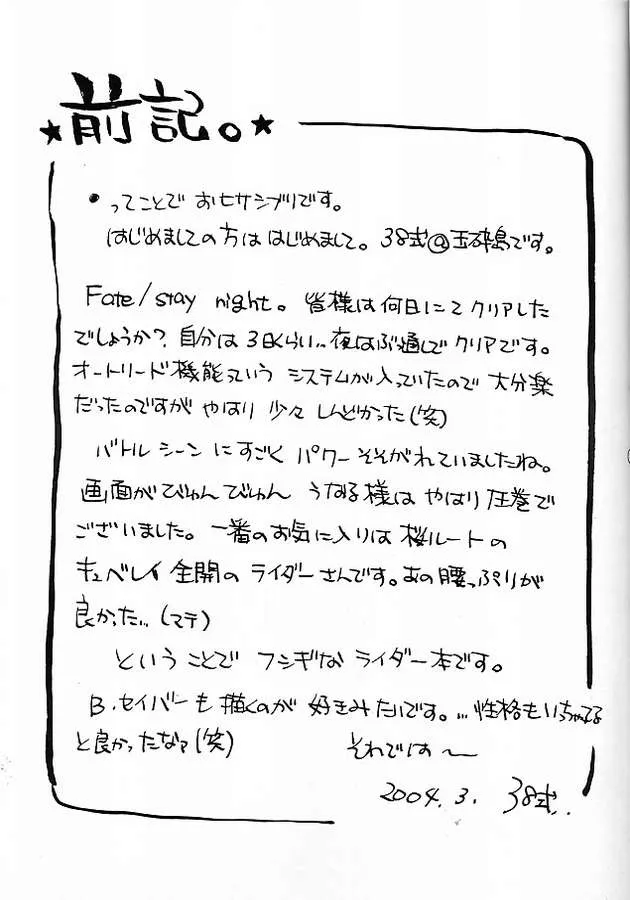 ★前記。★
・ってことで おヒサシブリです。
はじめましての方は はじめまして。38式@玉砕島です。
Fate/stay night。皆様は何日にて クリアした
でしょうか？自分は3日くらい..夜はぶっ通しで クリアです。
オートリード機能っていう システムが入っていたので 大分楽
だったのですが やはり 少々 しんどかった(笑)
バトルシーン にすごく パワー そそがれていましたね。
画面がびゅんびゅん うなる様は やはり 圧巻で
ございました。一番のお気に入りは 桜ルートの
キュベレイ 全開の ライダーさんです。あの腰っぷりが
良かった... (マテ)
ということで フシギな ライダー本です。
B.セイバーも 描くのが 好きみたいです。...性格もいっちゃってる
と良かったなァ(笑) それでは〜
2004.3. 38式..